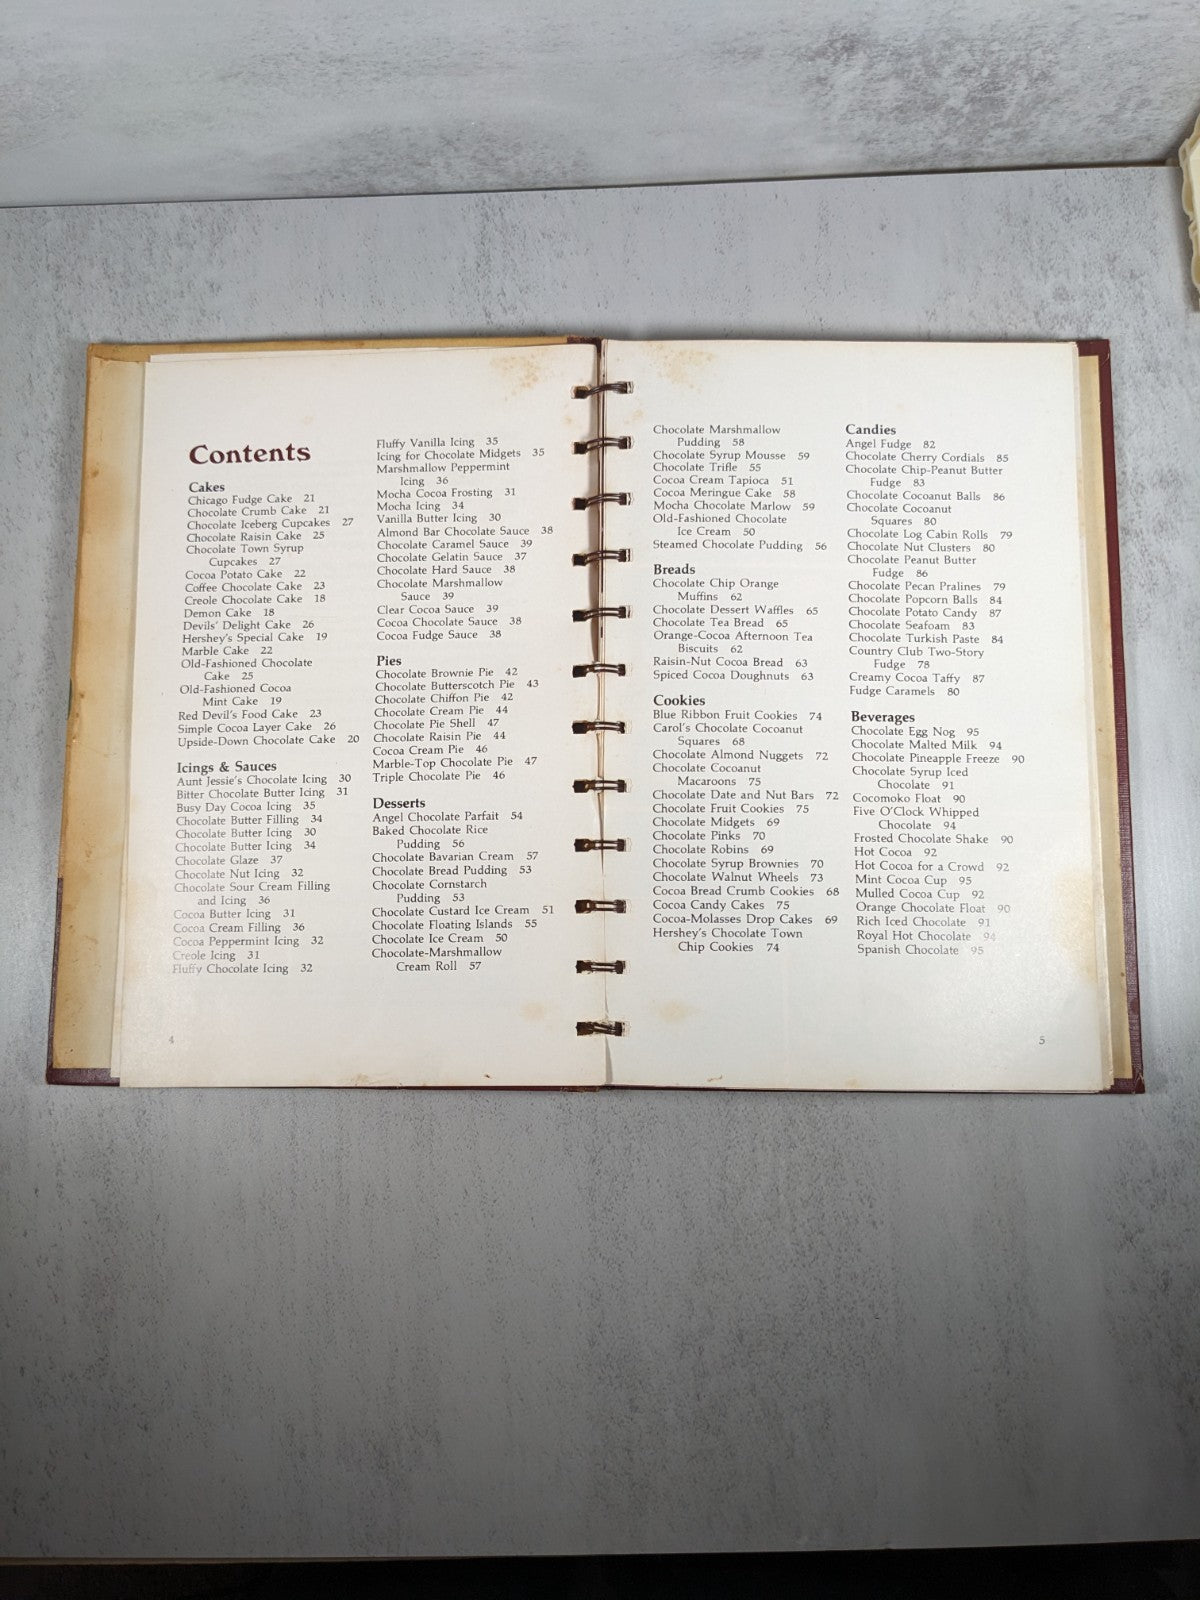 Contents
Cakes
Chicago Fudge Cake 21
Chocolate Crumb Cake 21
Chocolate Iceberg Cupcakes 27
Chocolate Raisin Cake 25
Chocolate Town Syrup
Cupcakes 27
Cocoa Potato Cake 22
Coffee Chocolate Cake 23
Creole Chocolate Cake 18
Demon Cake 18
Devils' Delight Cake 26
Hershey's Special Cake 19
Marble Cake 22
Old-Fashioned Chocolate
Cake 25
Old-Fashioned Cocoa
Mint Cake 19
Red Devil's Food Cake 23
Simple Cocoa Layer Cake 26
Upside-Down Chocolate Cake 20
Icings & Sauces
Aunt Jessie's Chocolate Icing 30
Bitter Chocolate Butter Icing 31
Busy Day Cocoa Icing 35
Chocolate Butter Filling 34
Chocolate Butter Icing 30
Chocolate Butter Icing 34
Chocolate Glaze 37
Chocolate Nut Icing 32
Chocolate Sour Cream Filling
and Icing 36
Cocoa Butter Icing 31
Cocoa Cream Filling 36
Cocoa Peppermint Icing 32
Creole Icing 31
Fluffy Chocolate Icing 32
Fluffy Vanilla Icing 35
Icing for Chocolate Midgets 35
Marshmallow Peppermint
Icing 36
Mocha Cocoa Frosting 31
Mocha Icing 34
Vanilla Butter Icing 30
Almond Bar Chocolate Sauce 38
Chocolate Caramel Sauce 39
Chocolate Gelatin Sauce 37
Chocolate Hard Sauce 38
Chocolate Marshmallow
Sauce 39
Clear Cocoa Sauce 39
Cocoa Chocolate Sauce 38
Cocoa Fudge Sauce 38
Pies
Chocolate Brownie Pie 42
Chocolate Butterscotch Pie 43
Chocolate Chiffon Pie 42
Chocolate Cream Pie 44
Chocolate Pie Shell 47
Chocolate Raisin Pie 44
Cocoa Cream Pie 46
Marble-Top Chocolate Pie 47
Triple Chocolate Pie 46
Desserts
Angel Chocolate Parfait 54
Baked Chocolate Rice
Pudding 56
Chocolate Bavarian Cream 57
Chocolate Bread Pudding 53
Chocolate Cornstarch
Pudding 53
Chocolate Custard Ice Cream 51
Chocolate Floating Islands 55
Chocolate Ice Cream 50
Chocolate-Marshmallow
Cream Roll 57
4
Chocolate Marshmallow
Pudding 58
Chocolate Syrup Mousse 59
Chocolate Trifle 55
Cocoa Cream Tapioca 51
Cocoa Meringue Cake 58
Mocha Chocolate Marlow 59
Old-Fashioned Chocolate
Ice Cream 50
Steamed Chocolate Pudding 56
Breads
Chocolate Chip Orange
Muffins 62
Chocolate Dessert Waffles 65
Chocolate Tea Bread 65
Orange-Cocoa Afternoon Tea
Biscuits 62
Raisin-Nut Cocoa Bread 63
Spiced Cocoa Doughnuts 63
Cookies
Blue Ribbon Fruit Cookies 74
Carol's Chocolate Cocoanut
Squares 68
Chocolate Almond Nuggets 72
Chocolate Cocoanut
Macaroons 75
Chocolate Date and Nut Bars 72
Chocolate Fruit Cookies 75
Chocolate Midgets 69
Chocolate Pinks 70
Chocolate Robins 69
Chocolate Syrup Brownies 70
Chocolate Walnut Wheels 73
Cocoa Bread Crumb Cookies 68
Cocoa Candy Cakes 75
Cocoa-Molasses Drop Cakes 69
Hershey's Chocolate Town
Chip Cookies 74
Candies
Angel Fudge 82
Chocolate Cherry Cordials 85
Chocolate Chip-Peanut Butter
Fudge 83
Chocolate Cocoanut Balls 86
Chocolate Cocoanut
Squares 80
Chocolate Log Cabin Rolls 79
Chocolate Nut Clusters 80
Chocolate Peanut Butter
Fudge 86
Chocolate Pecan Pralines 79
Chocolate Popcorn Balls 84
Chocolate Potato Candy 87
Chocolate Seafoam 83
Chocolate Turkish Paste 84
Country Club Two-Story
Fudge 78
Creamy Cocoa Taffy 87
Fudge Caramels 80
Beverages
Chocolate Egg Nog 95
Chocolate Malted Milk 94
Chocolate Pineapple Freeze 90
Chocolate Syrup Iced
Chocolate 91
Cocomoko Float 90
Five O'Clock Whipped
Chocolate 94
Frosted Chocolate Shake 90
Hot Cocoa 92
Hot Cocoa for a Crowd 92
Mint Cocoa Cup 95
Mulled Cocoa Cup 92
Orange Chocolate Float 90
Rich Iced Chocolate 91
Royal Hot Chocolate 94
Spanish Chocolate 95
5